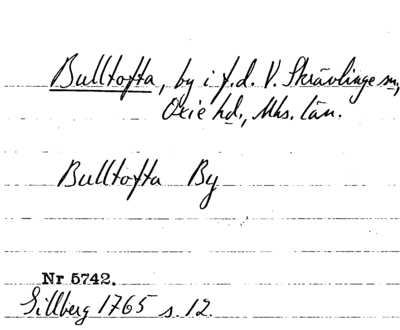 Bulltofta, by i f.d. V. Skrävlinge sn,
Oxie hd., Mhs. län.
Bulltofta By
Nr 5742.
Gillberg 1765 s. 12.